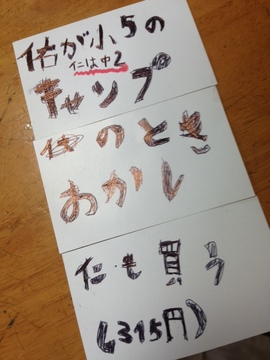 佑が小5の
仁は中2
キャンプ
のとき
おかし
仁も買う
(315円)